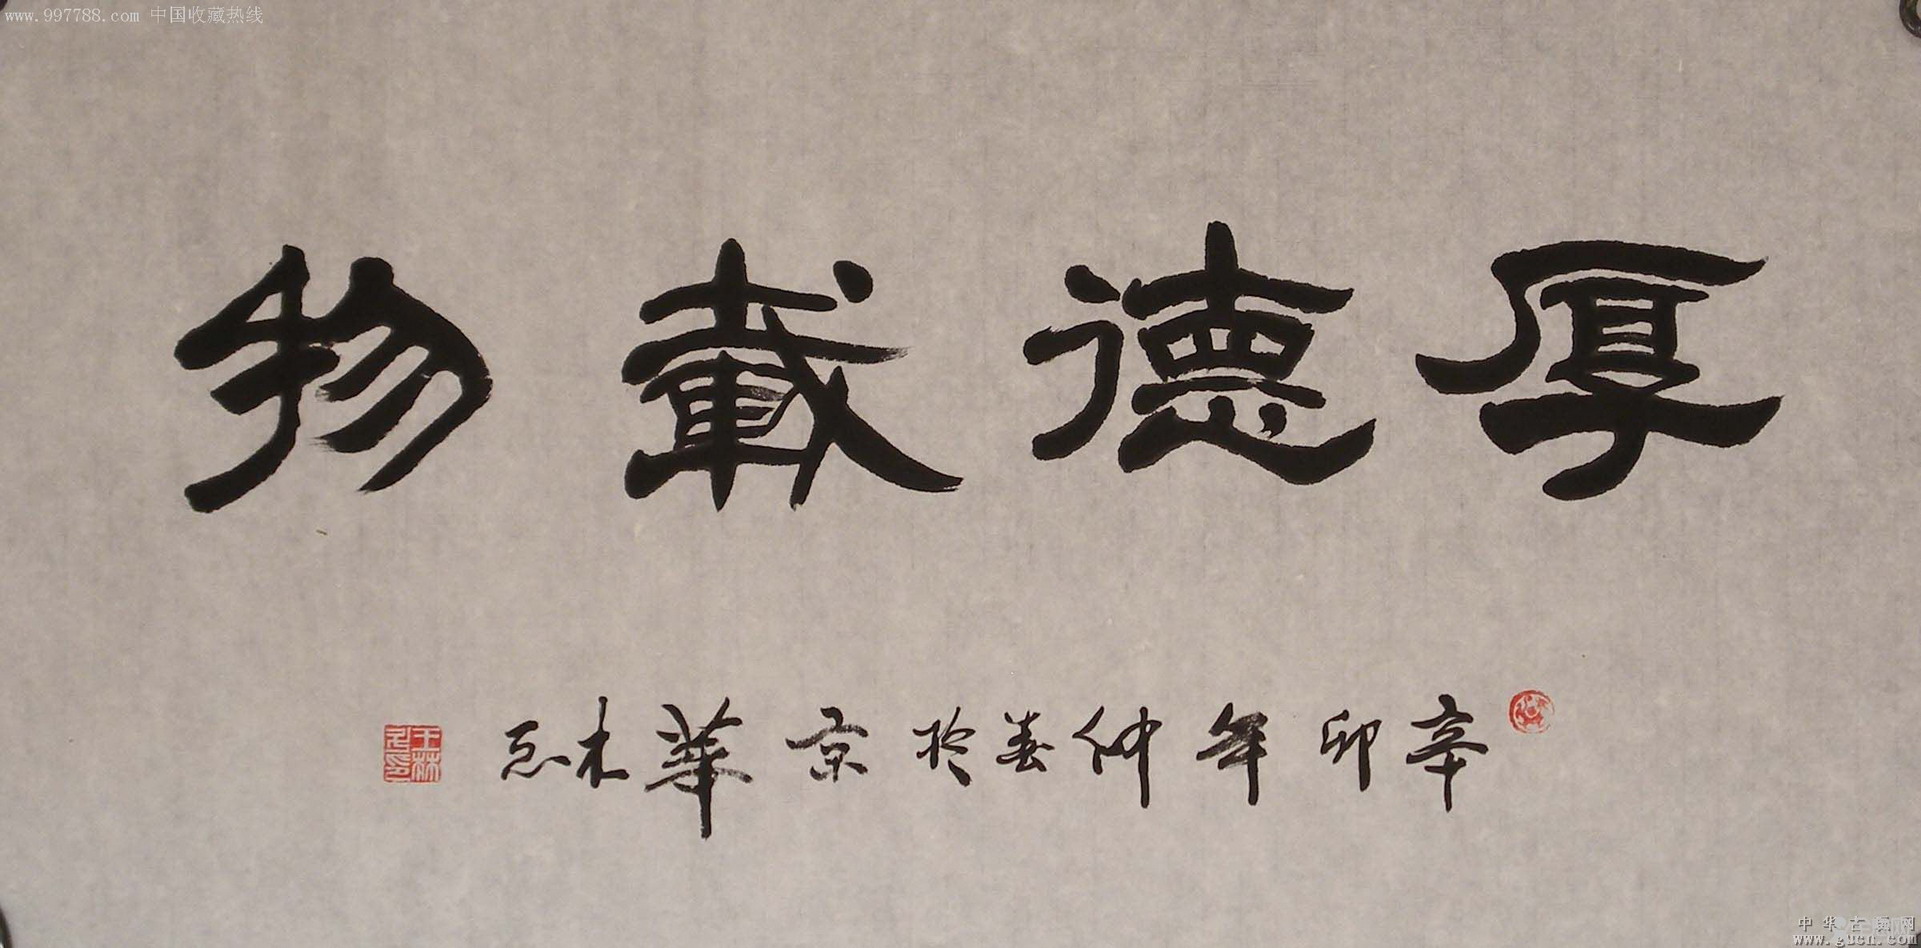 www.997788.com 中国收藏热线
厚德載物
辛卯年仲春於京華木
王林
中华古玩网
www.gucn.com